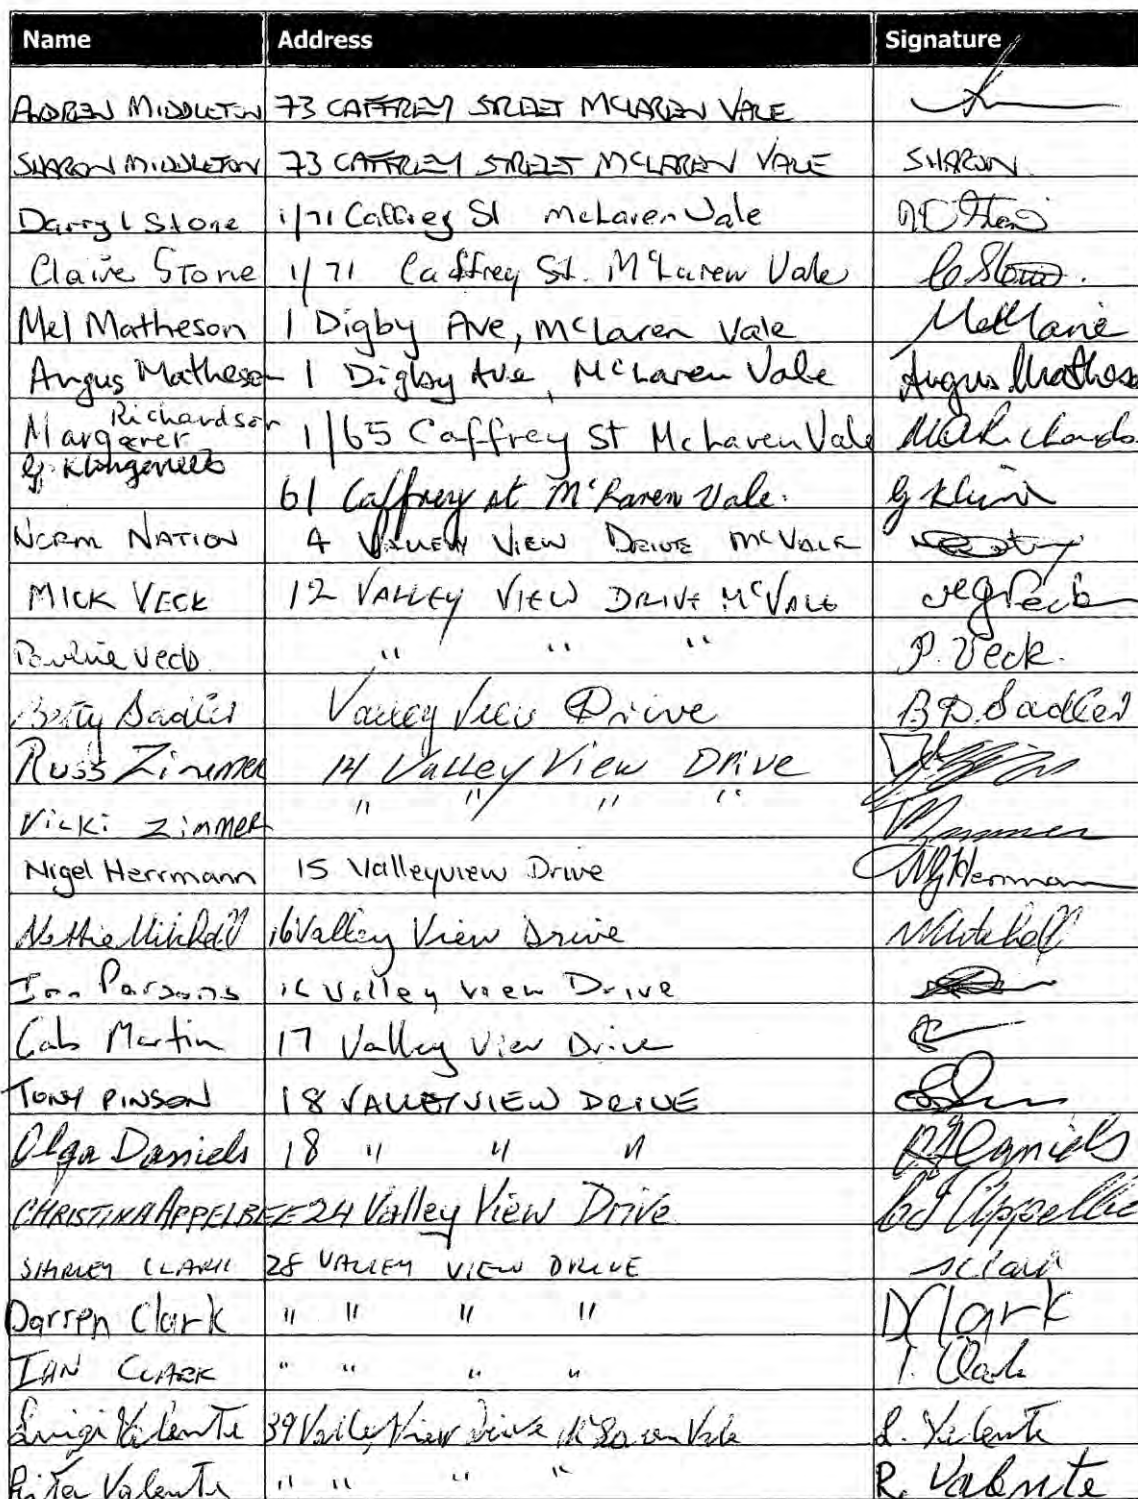 Name Address Signature
ANDREW MIDDLETON 73 CAFFREY STREET MCLAREN VALE
SHARON MIDDLETON 73 CAFFREY STREET MCLAREN VALE SHARON
Darryl Stone 1/71 Caffrey St McLaren Vale
Claire Stone 1/71 Caffrey St. McLaren Vale C Stone.
Mel Matheson 1 Digby Ave, McLaren Vale
Angus Matheson 1 Digby Ave, McLaren Vale Angus Matheso
Richardson
Margaret 1/65 Caffrey St McLaren Vale
G. 61 Caffrey st McLaren Vale.
NORM NATION 4 VALLEY VIEW DRIVE MCVALE
MICK VECK 12 VALLEY VIEW DRIVE McVALE
Pauline Veck " " " P. Veck.
Betty Sadler Valley View Drive B D. Sadler
Russ Zimmer 14 Valley View Drive
Vicki Zimmer " " " "
Nigel Herrmann 15 Valleyview Drive
Nettie Mitchell 16 Valley View Drive N Mitchell
Ian Parsons 16 Valley View Drive
Martin 17 Valley View Drive
TONY PINSON 18 VALLEYVIEW DRIVE
Olga Daniels 18 " " " Daniels
CHRISTINA APPELBEE 24 Valley View Drive
SHIRLEY CLARK 28 VALLEY VIEW DRIVE S Clark
Darren Clark " " " " D Clark
IAN CLARK " " " " I. Clark
Luigi Valente 39 Valley View Drive McLaren Vale L. Valente
Rita Valente " " " " R. Valente